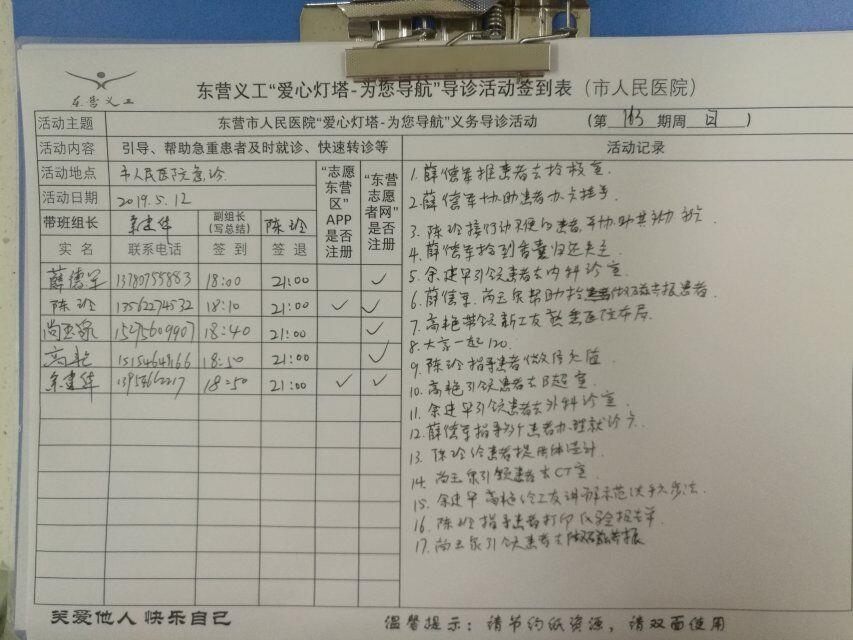 东营义工
东营义工“爱心灯塔-为您导航”导诊活动签到表（市人民医院）
活动主题 东营市人民医院“爱心灯塔-为您导航”义务导诊活动 （第 期周 日 ）
活动内容 引导、帮助急重患者及时就诊、快速转诊等 活动记录
活动地点 市人民医院急诊
活动日期 2019.5.12
“志愿东营区”APP是否注册
“东营志愿者网”是否注册
带班组长 余建华 副组长（写总结） 陈玲
实名 联系电话 签到 签退
薛德军 13780755883 18:00 21:00 ✓
陈玲 13562274532 18:10 21:00 ✓ ✓
尚玉泉 15275609907 18:40 21:00 ✓
高艳 18:50 21:00 ✓
余建华 18:50 21:00 ✓ ✓
1. 薛德军推患者去检板室.
2. 薛德军协助患者办卡挂号
3. 陈玲接行动不便的患者,并协助其
4. 薛德军捡到 归还失主
5. 余建华引领患者去内科诊室.
6. 薛德军.尚玉泉帮助 患者.
7. 高艳带领新工友熟悉医院布局.
8. 大家一起120.
9. 陈玲指导患者做
10. 高艳引领患者去B超室.
11. 余建华引领患者去外科诊室
12. 薛德军指导 患者办理就诊卡.
13. 陈玲给患者提供体温计
14. 尚玉泉引领患者去CT室.
15. 余建华高艳给工友讲解示范洗手六步法.
16. 陈玲指导患者打印化验报告单.
17. 尚玉泉引领患者去
关爱他人 快乐自己
温馨提示：请节约纸资源，请双面使用